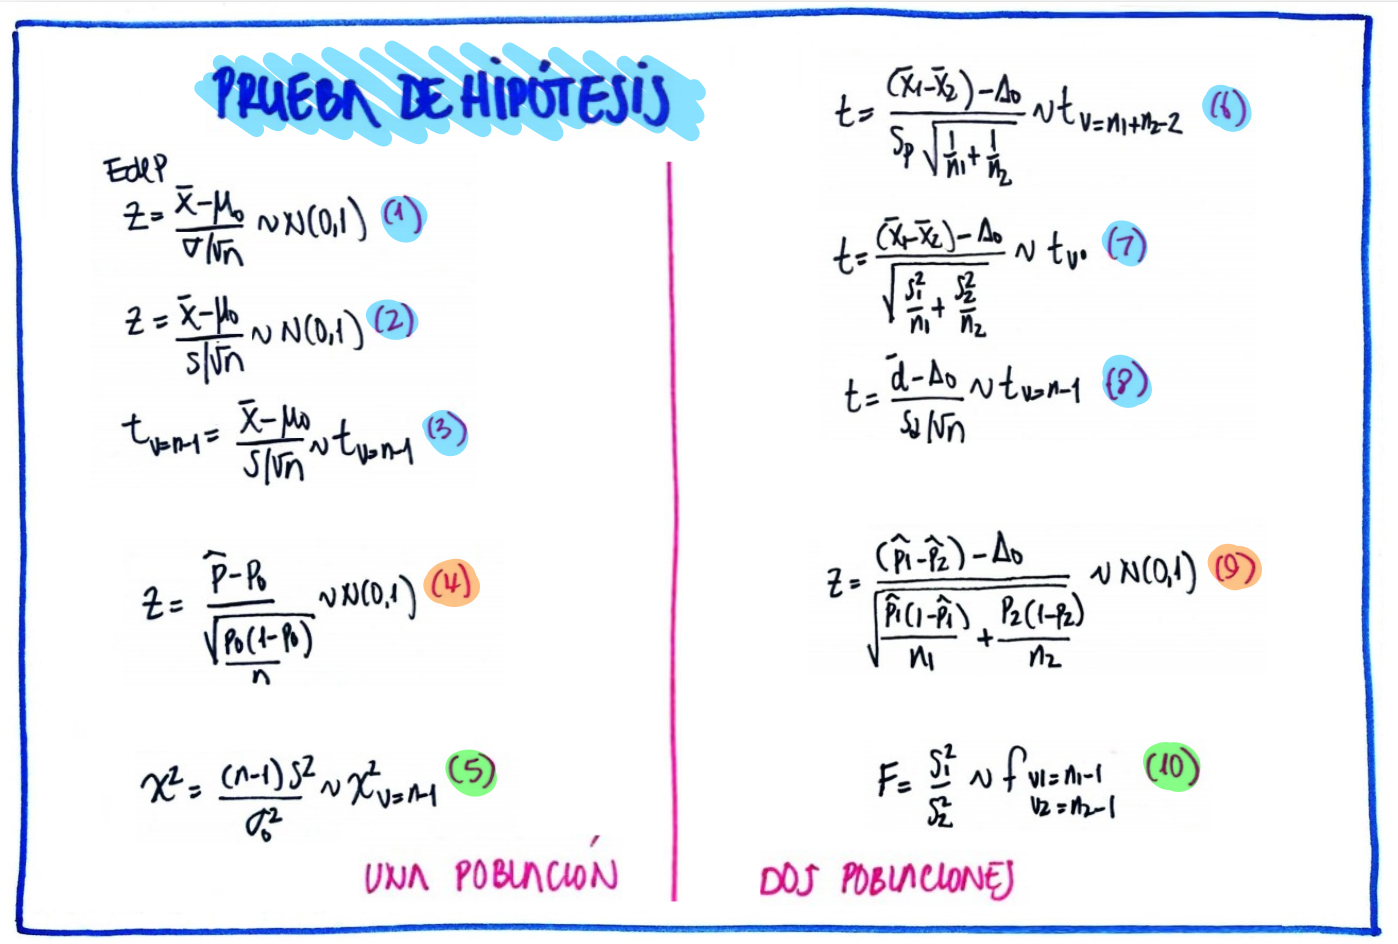 PRUEBA DE HIPÓTESIS
EdeP
Z = (x̄ - μ₀) / (σ/√n) ~ N(0,1) (1)
Z = (x̄ - μ₀) / (s/√n) ~ N(0,1) (2)
t_{v=n-1} = (x̄ - μ₀) / (s/√n) ~ t_{v=n-1} (3)
Z = (p̂ - p₀) / √(p₀(1-p₀)/n) ~ N(0,1) (4)
χ² = (n-1)S² / σ₀² ~ χ²_{v=n-1} (5)
UNA POBLACIÓN
t = ((x̄₁ - x̄₂) - Δ₀) / (Sp √(1/n₁ + 1/n₂)) ~ t_{v=n₁+n₂-2} (6)
t = ((x̄₁ - x̄₂) - Δ₀) / √(S₁²/n₁ + S₂²/n₂) ~ t_{v•} (7)
t = (d̄ - Δ₀) / (S_d/√n) ~ t_{v=n-1} (8)
Z = ((p̂₁ - p̂₂) - Δ₀) / √(p̂₁(1-p̂₁)/n₁ + p₂(1-p₂)/n₂) ~ N(0,1) (9)
F = S₁²/S₂² ~ f_{v1=n₁-1, v2=n₂-1} (10)
DOS POBLACIONES